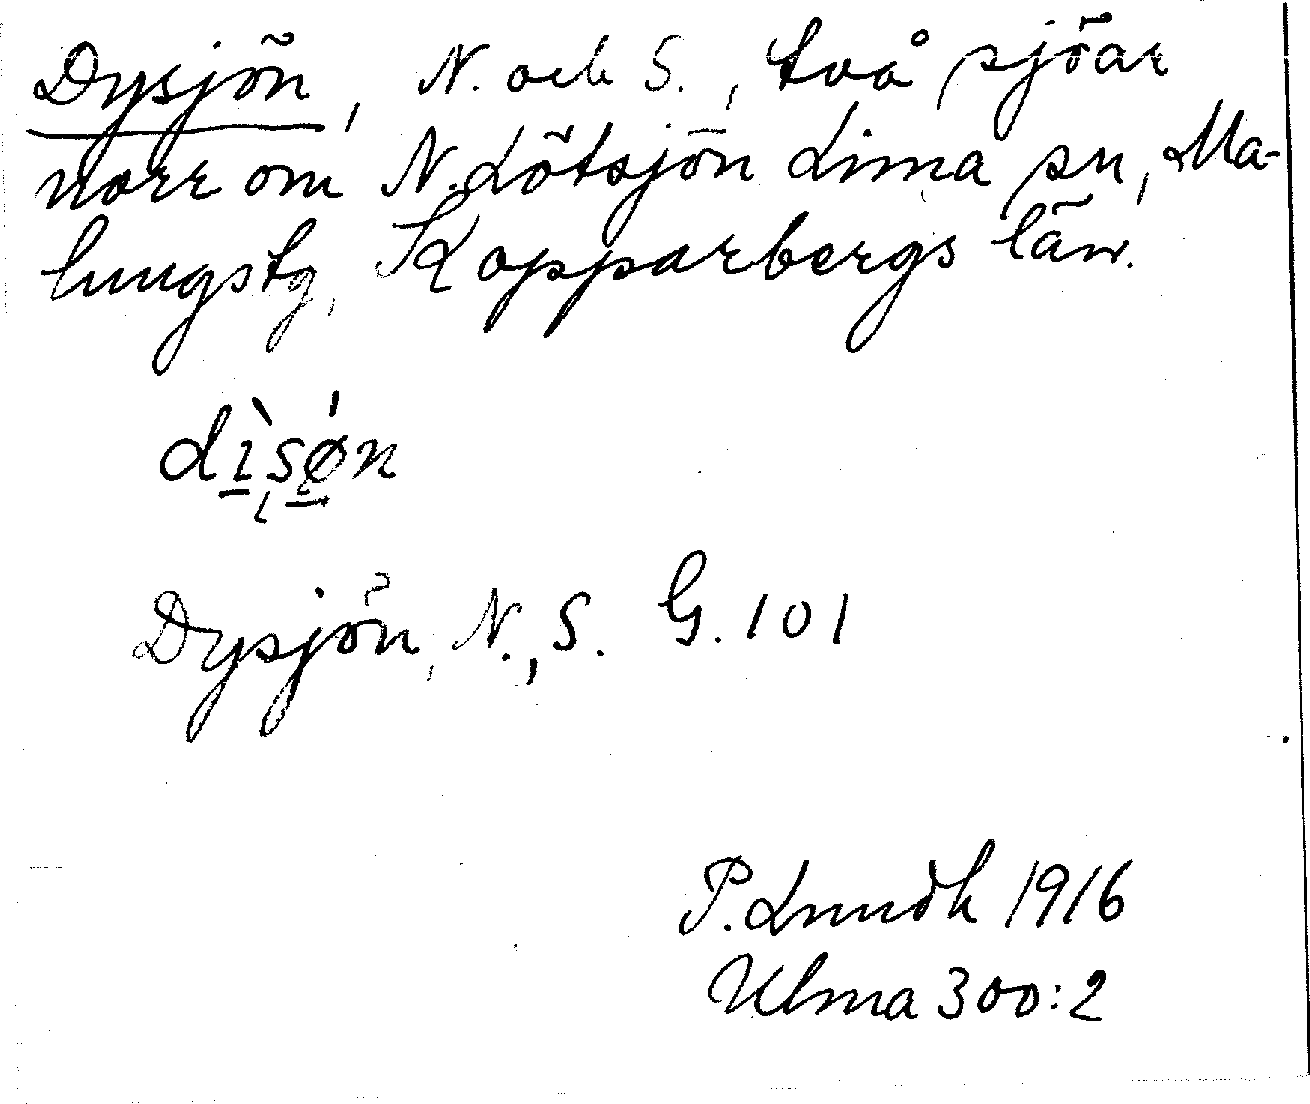 Dysjön, N. och S., två sjöar
norr om N. Lötsjön Lima sn, Ma-
lungs tg, Kopparbergs län.
dìsø̀n
Dysjön, N., S. G. 101
P. Lundh 1916
Ulma 300:2